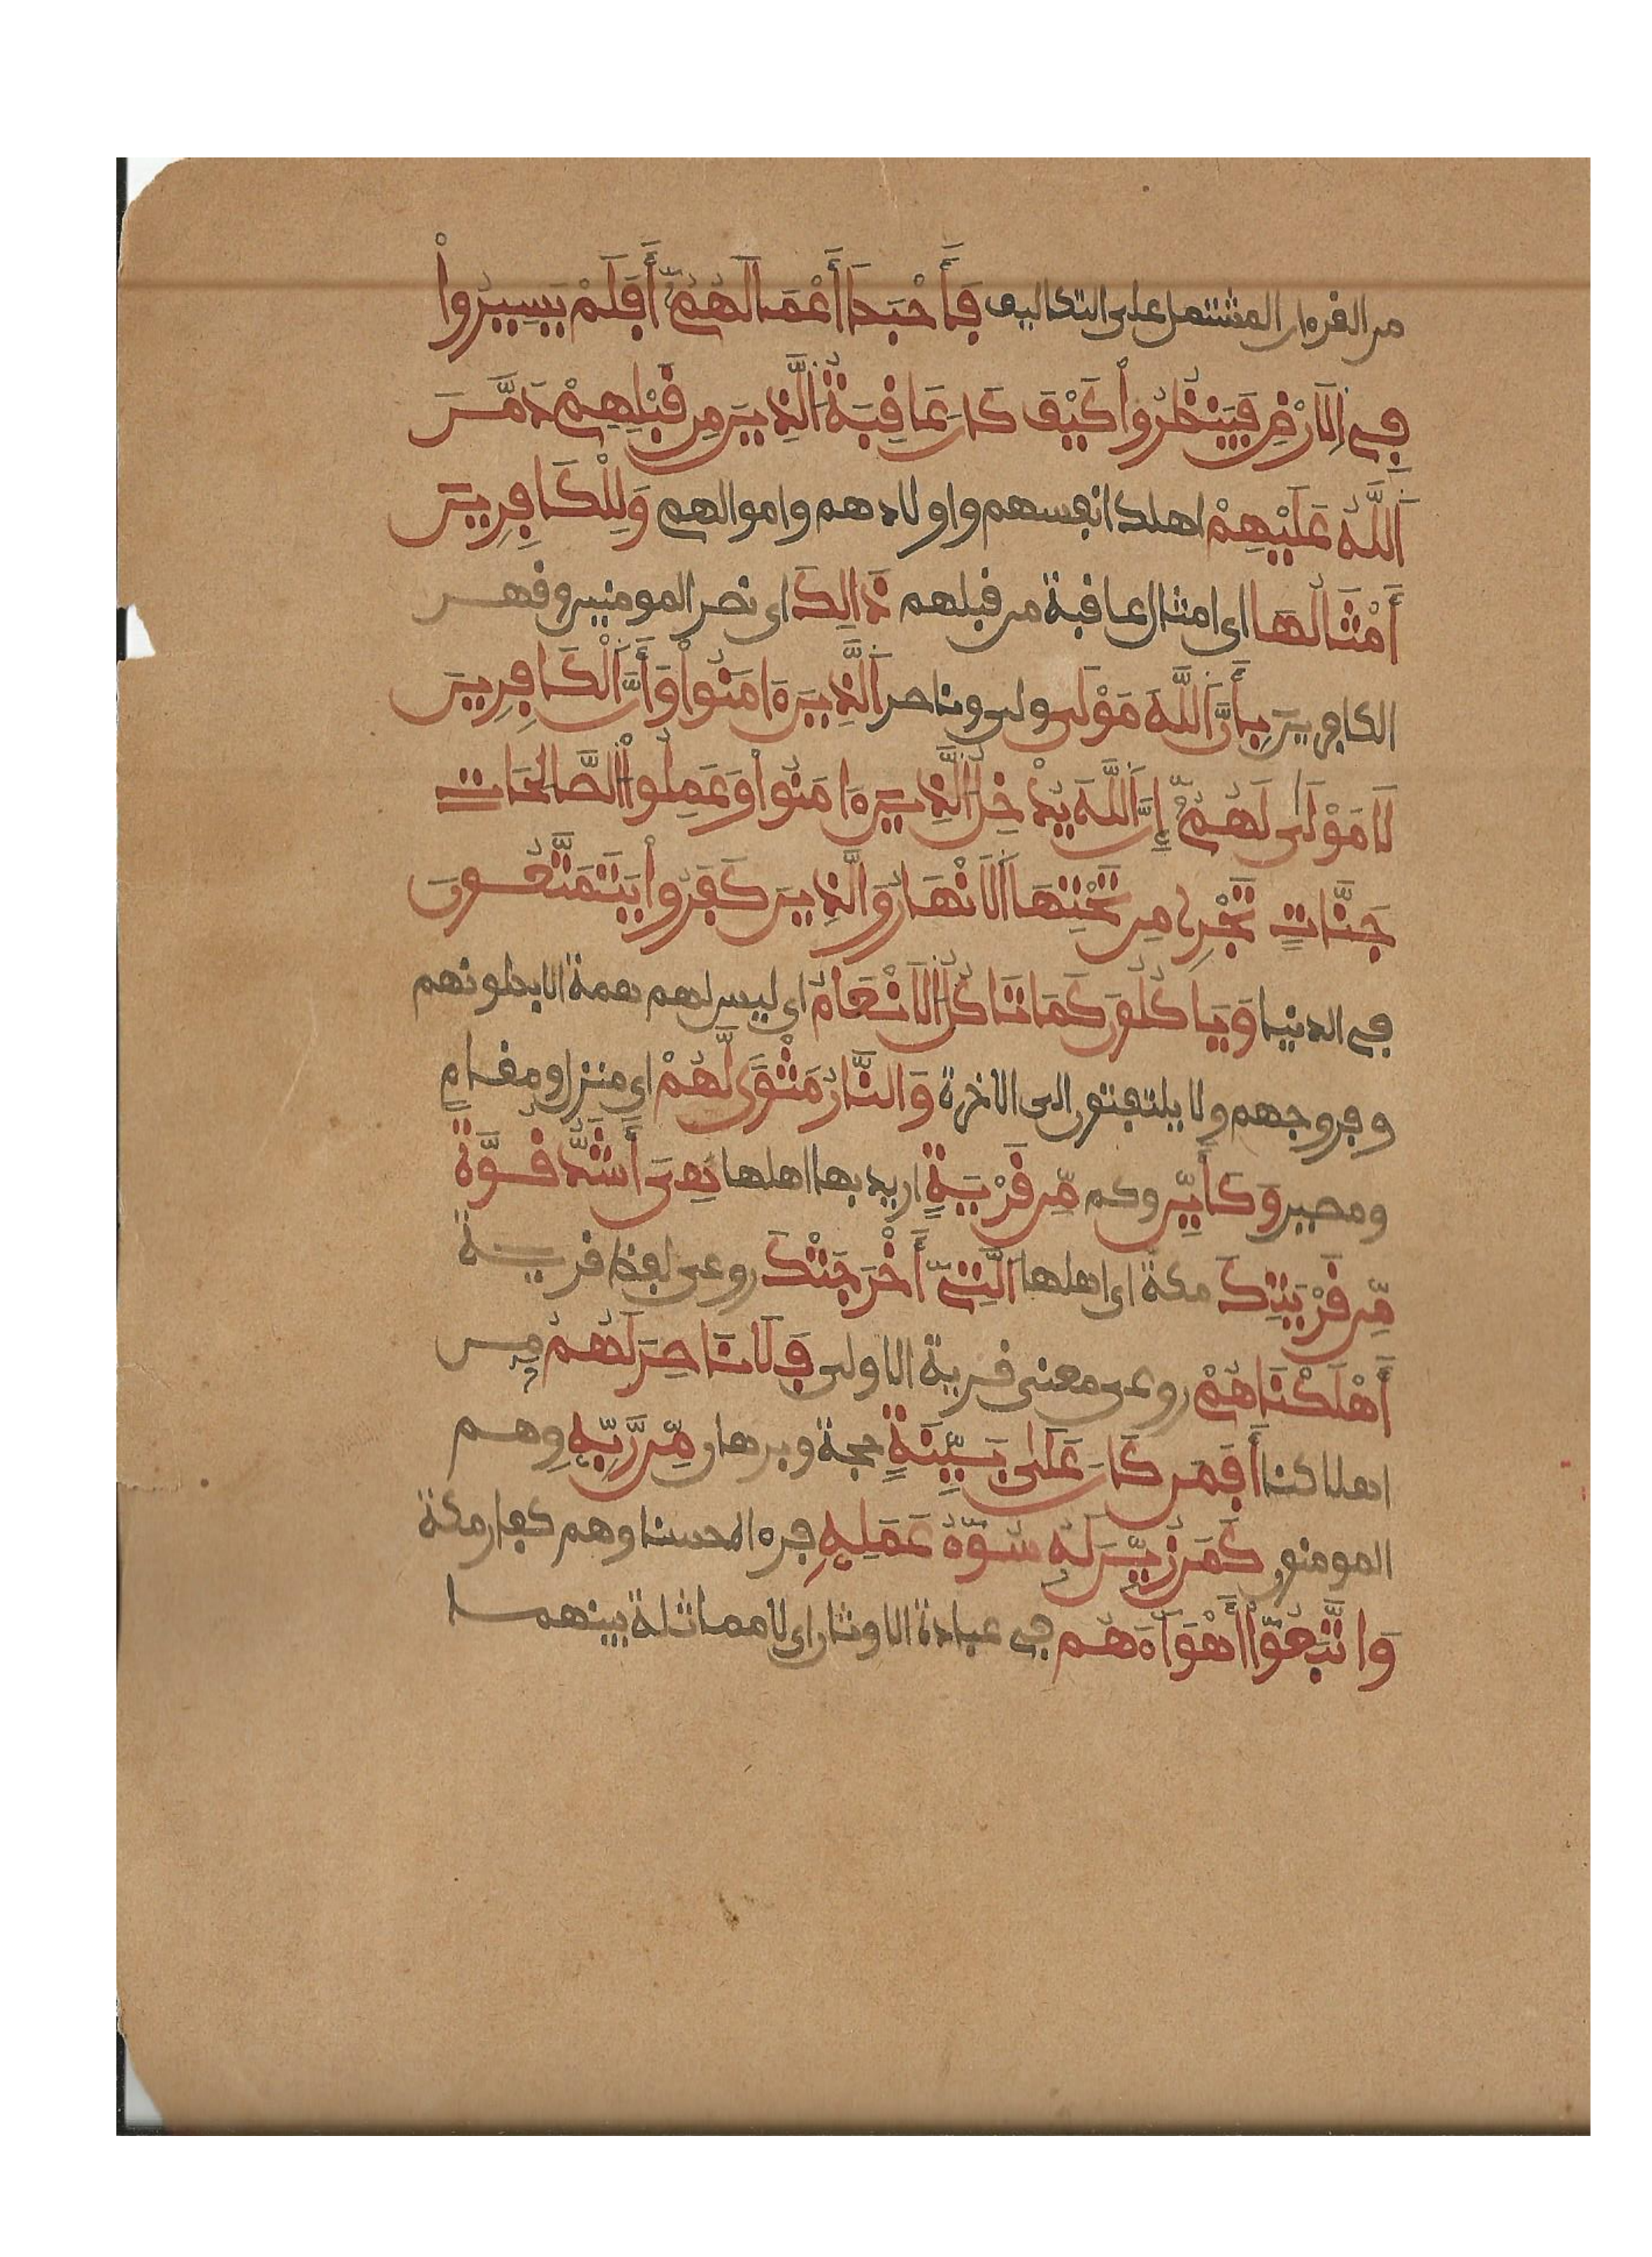 من القرءان المشتمل على التكاليف فَأَحْبَطَ أَعْمَالَهُمُ أَفَلَمْ يَسِيرُواْ
فِي اِلَارْضِ فَيَنظُرُواْ كَيْفَ كَانَ عَاقِبَةُ اُلذِينَ مِن قَبْلِهِمْ دَمَّرَ
اَللَّهُ عَلَيْهِمْ اهلك انفسهم واولادهم واموالهم وَلِلْكَافِرِينَ
أَمْثَالُهَا اى امثال عاقبة من قبلهم ذَالِكَ اى نصر المومنين وقهر
الكافرين بِأَنَّ اَللَّهَ مَوْلَى ولى وناصر اَلَّذِينَ ءَامَنُواْ وَأَنَّ اَلْكَافِرِينَ
لَا مَوْلَى لَهُمُ إِنَّ اَللَّهَ يُدْخِلُ اُلَّذِينَ ءَامَنُواْ وَعَمِلُواْ اُلصَّالِحَاتِ
جَنَّاتٍ تَجْرِى مِن تَحْتِهَا اَلَانْهَارُ وَالَّذِينَ كَفَرُواْ يَتَمَتَّعُونَ
فى الدنيا وَيَاكُلُونَ كَمَا تَاكُلُ اُلَانْعَامُ اى ليس لهم همة الا بطونهم
وفروجهم ولا يلتفتون الى الاخرة وَالنَّارُ مَثْوًى لَّهُمْ اى منزل ومقام
ومصير وَكَأَيِّن وكم مِّن قَرْيَةٍ اريد بها اهلها هِىَ أَشَدُّ قُوَّةً
مِّن قَرْيَتِكَ مكة اى اهلها اَلَّتِى أَخْرَجَتْكَ روعى لفظ قرية
أَهْلَكْنَاهُمْ روعى معنى قرية الاولى فَلَا نَاصِرَ لَهُمْ من
اهلاكنا أَفَمَن كَانَ عَلَى بَيِّنَةٍ حجة وبرهان مِّن رَّبِّهِ وهم
المومنون كَمَن زُيِّنَ لَهُ سُوٓءُ عَمَلِهِ فرءاه حسنا وهم كفار مكة
وَاتَّبَعُوٓاْ أَهْوَآءَهُم فى عبادة الاوثان اى لا مماثلة بينهما